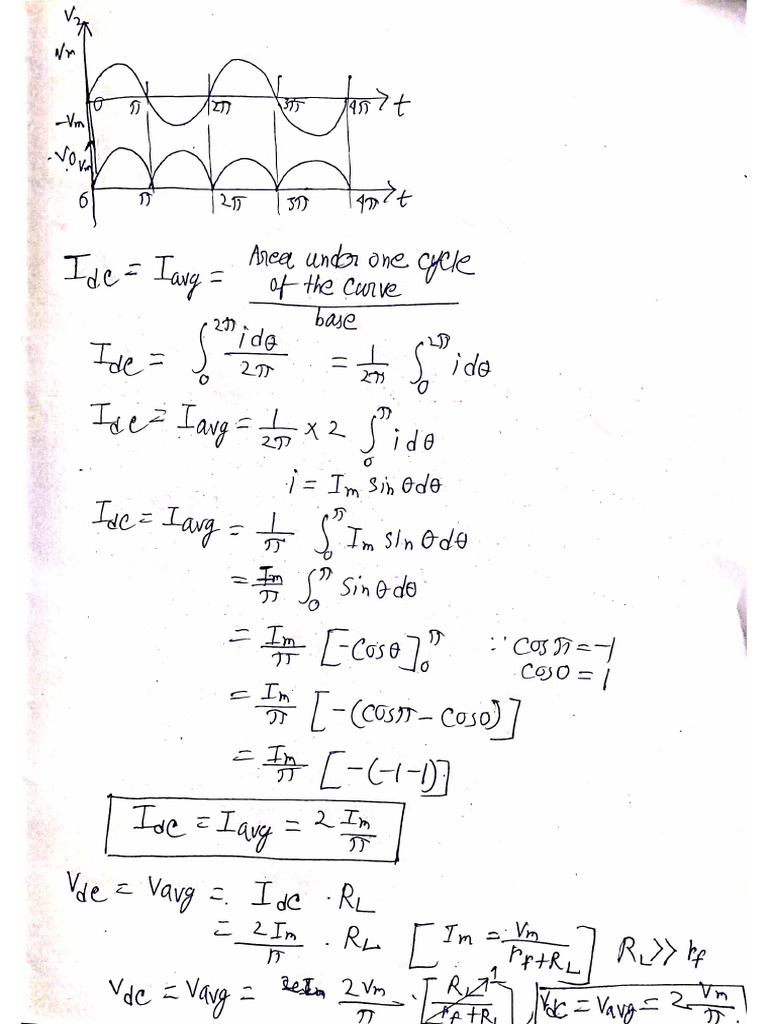 V2
Vm
0 π 2π 3π 4π t
-Vm
-Vo
Vm
0 π 2π 3π 4π t
Idc = Iavg = Area under one cycle of the curve / base
Idc = ∫₀^2π idθ/2π = 1/2π ∫₀^2π idθ
Idc = Iavg = 1/2π × 2 ∫₀^π idθ
i = Im sin θdθ
Idc = Iavg = 1/π ∫₀^π Im sin θdθ
= Im/π ∫₀^π sin θdθ
= Im/π [-cosθ]₀^π ∵ cos π = -1
cos 0 = 1
= Im/π [-(cosπ - cos0)]
= Im/π [-(-1-1)]
Idc = Iavg = 2 Im/π
Vdc = Vavg = Idc · RL
= 2Im/π · RL [Im = Vm/rf+RL] RL >> rf
Vdc = Vavg = 2Vm/π · [RL/rf+RL] 1 Vdc = Vavg = 2 Vm/π